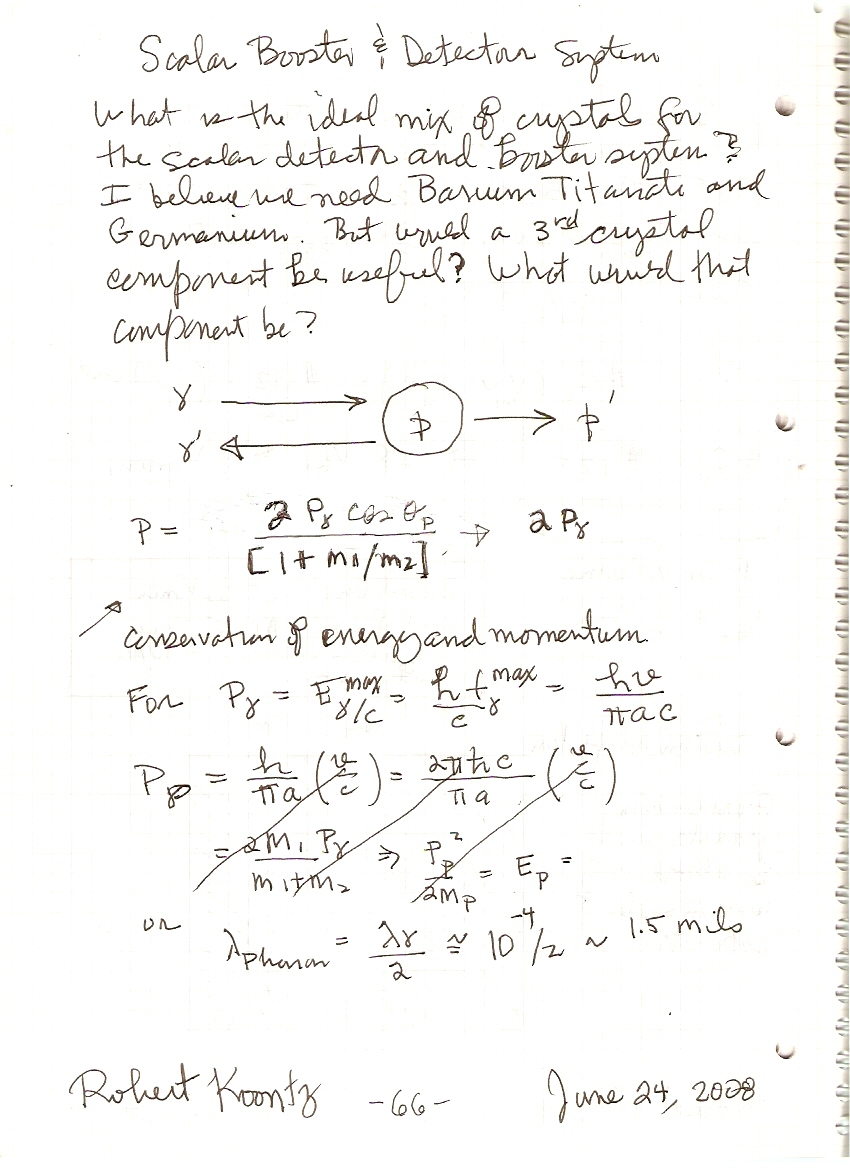 Scalar Booster & Detector System
What is the ideal mix of crystals for
the scalar detector and booster system?
I believe we need Barium Titanate and
Germanium. But would a 3rd crystal
component be useful? What would that
component be?
γ → p → p'
γ' ←
P = 2 Pγ cos θp / [1 + m1/m2] → 2 Pγ
Conservation of energy and momentum
For Pγ = E^max γ/c = h fγ^max / c = hv / πac
Pp = h/πa (v/c) = 2πħc/πa (v/c)
= 2m1 Pγ / m1+m2 ⇒ Pp²/2mp = Ep =
or λphonon = λγ/2 ≅ 10^-4/2 ~ 1.5 mils
Robert Koontz -66- June 24, 2008